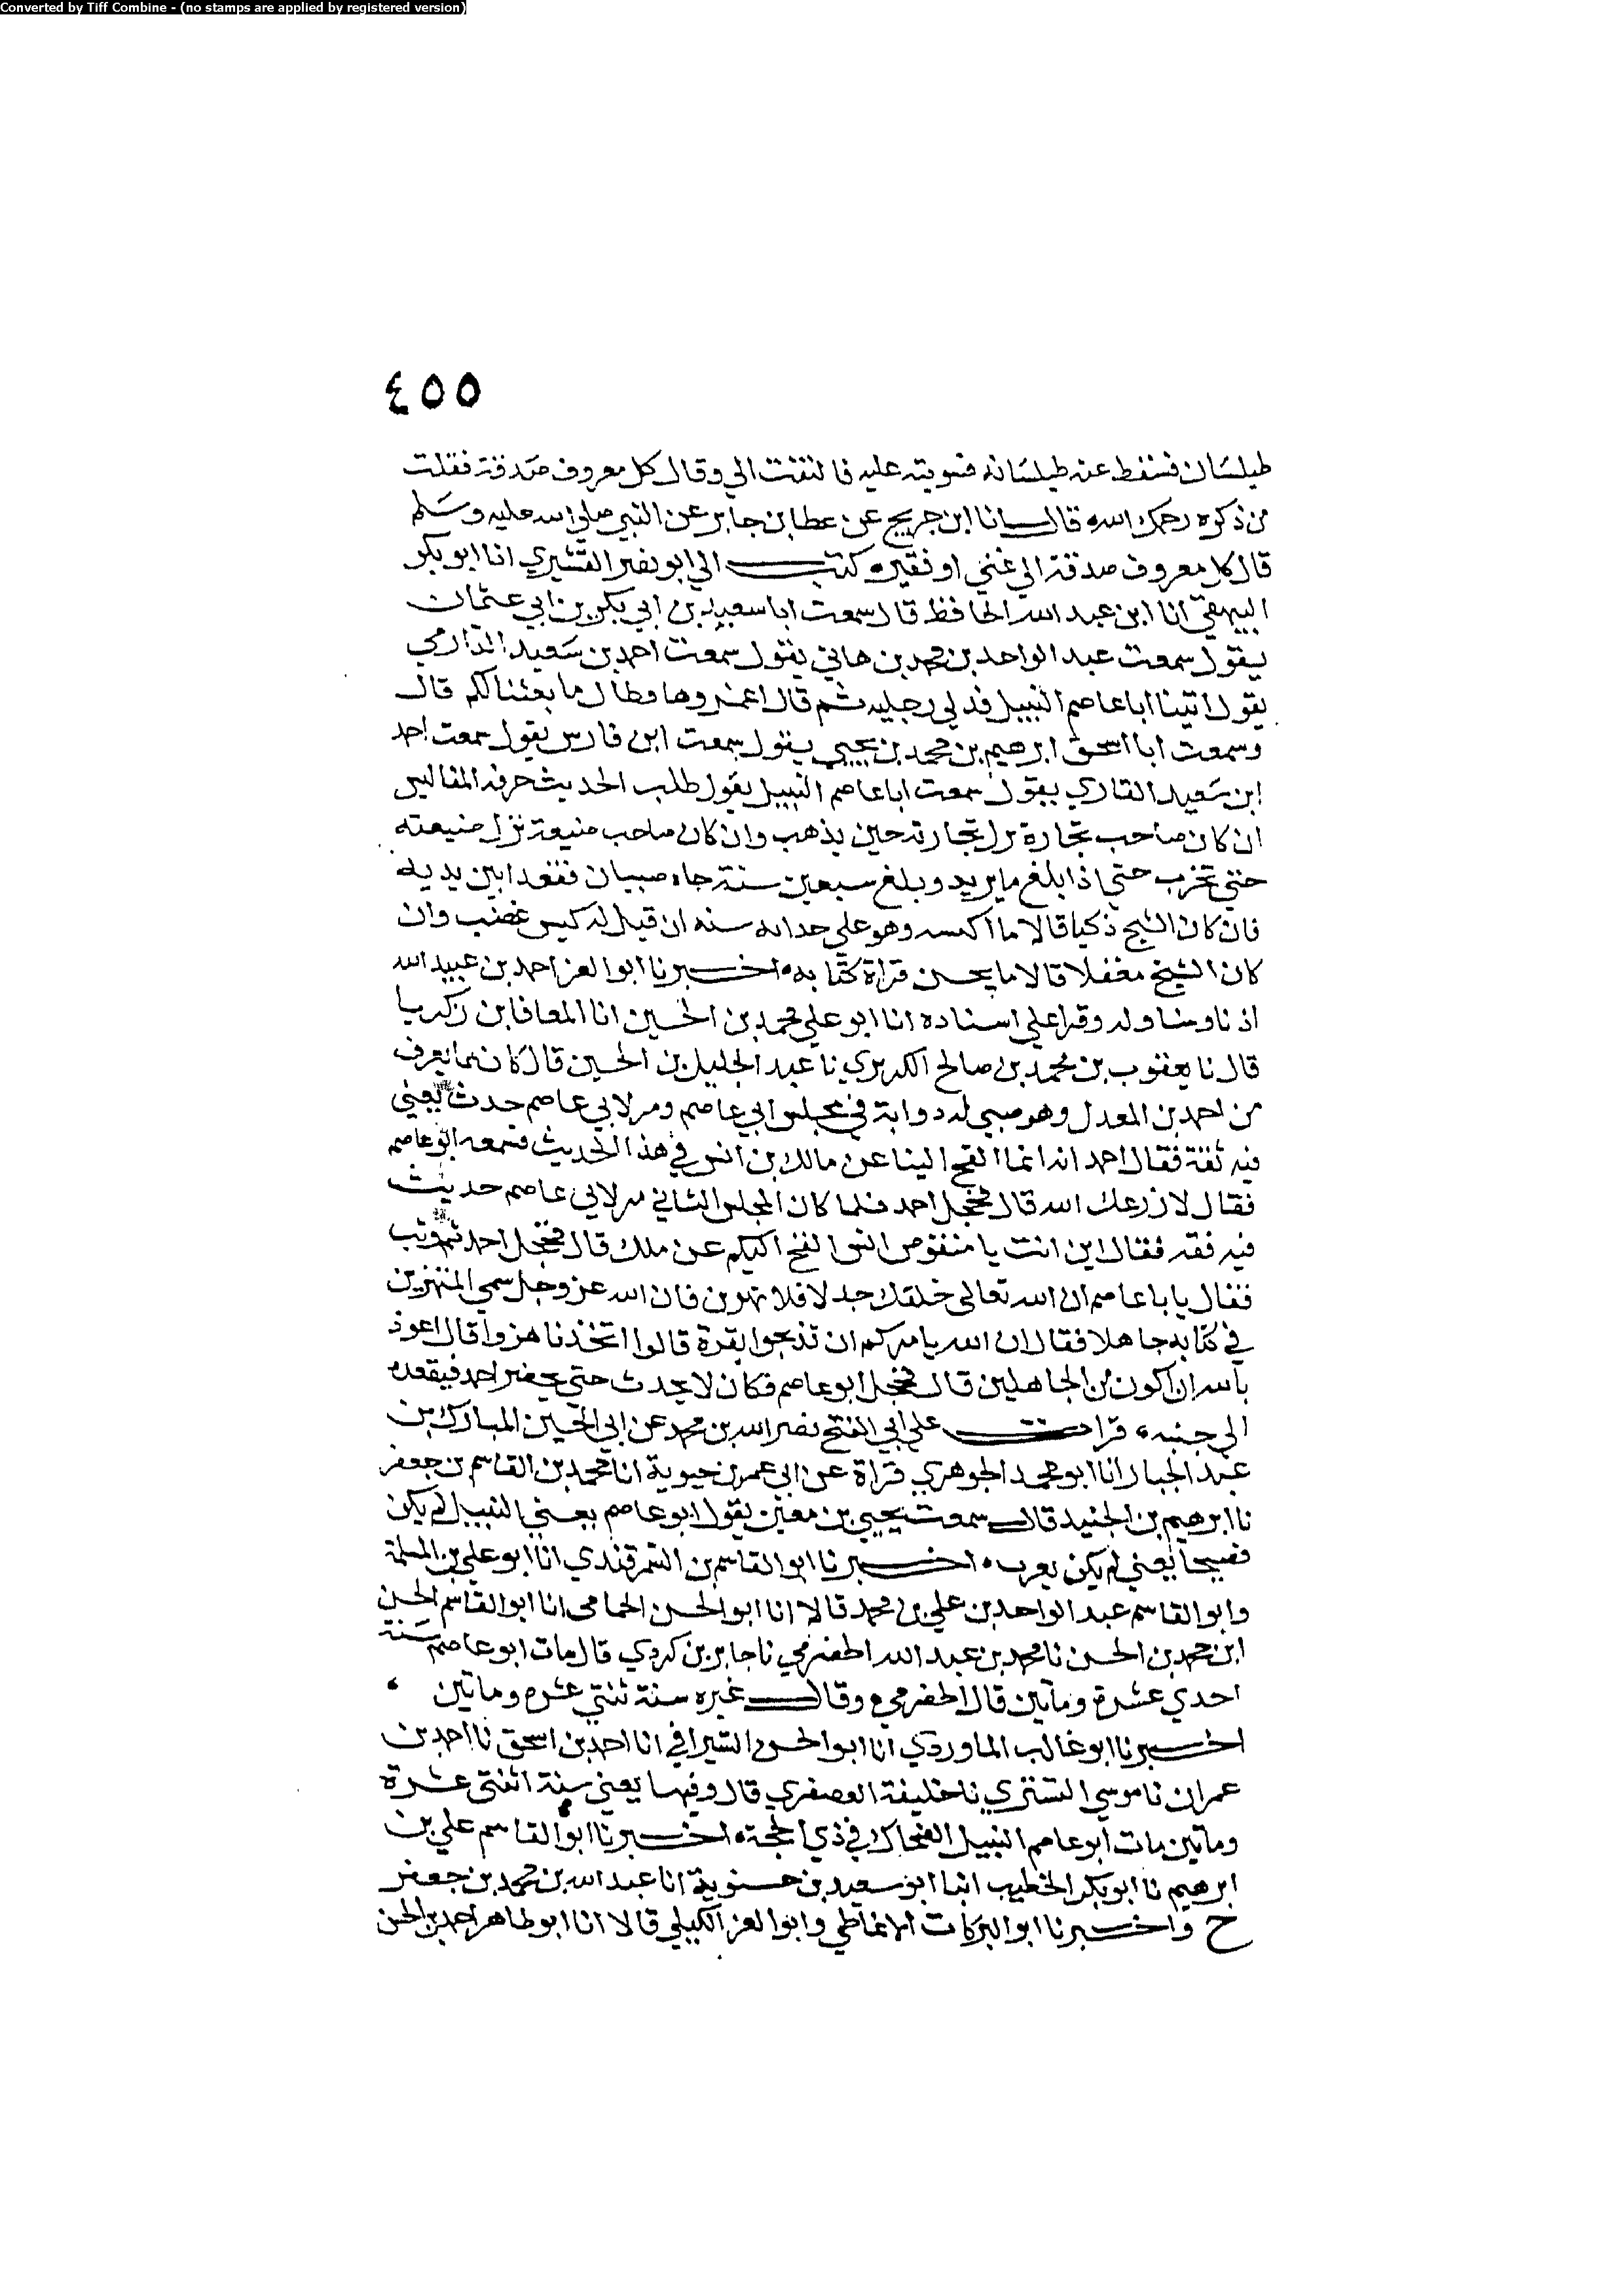 Converted by Tiff Combine - (no stamps are applied by registered version)
٤٥٥
طيلسان فسقط عنه طيلسانه فسويته عليه فالتفت الي وقال كل معروف صدقة فقلت
من ذكره رحمك الله قال انا ابن جريج عن عطا بن جابر عن النبي صلى الله عليه وسلم
قال كل معروف صدقة الي غني او فقير كتب الي ابو نصر القشيري انا ابو بكر
البيهقي انا ابن عبد الله الحافظ قال سمعت ابا سعيد بن ابي بكر بن ابي عثمان
يقول سمعت عبد الواحد بن محمد بن هاني يقول سمعت احمد بن سعيد الدارمي
يقول اتينا ابا عاصم النبيل فدلي رجليه ثم قال اغمزوها فطال ما بعثنا لكم قال
وسمعت ابا اسحق ابرهيم بن محمد بن يحيي يقول سمعت ابن فارس يقول سمعت احمد
ابن سعيد القاري يقول سمعت ابا عاصم النبيل يقول طلب الحديث حرفة المفاليس
ان كان صاحب تجارة ترك تجارته حين يذهب وان كان صاحب ضيعة ترك ضيعته
حتي تخرب حتي اذا بلغ ما يريد وبلغ سبعين سنة جاه صبيان فقعدا بين يديه
فان كان الشيخ ذكيا قالا ما اكيسه وهو علي حداثه سنه ان قيل له كيس غضب وان
كان الشيخ مغفلا قالا ما يحسن قراة كتابه اخبرنا ابو العز احمد بن عبيد الله
اذنا ومناوله وقرا علي اسناده انا ابو علي محمد بن الحسين انا المعافا بن زكريا
قال نا يعقوب بن محمد بن صالح الكريزي نا عبد الجليل بن الحسين قال كان مما يعرف
من احمد بن المعدل وهو صبي له دوابة في مجلس ابي عاصم ومر لابي عاصم حدث يعني
فيه ثقة فقال احمد انه انما القح الينا عن مالك بن انس في هذا الحديث فسمعه ابو عاصم
فقال لا زرعك الله قال فخجل احمد فلما كان المجلس الثاني مر لابي عاصم حديث
فيه فقه فقال اين انت يا منقوص القح اليكم عن ملك قال فخجل احمد ثم وثب
فقال يابا عاصم ان الله تعالى خلقك جدلا فلا تهزن فان الله عز وجل سمي المستهزين
في كتابه جاهلا فقال ان الله يامركم ان تذبحوا بقرة قالوا اتتخذنا هزوا قال اعوذ
بالله ان اكون من الجاهلين قال فخجل ابو عاصم فكان لا يحدث حتي يحضر احمد فيقعده
الي جنبه قرات علي ابي الفتح نصر الله بن محمد عن ابي الحسين المبارك بن
عبد الجبار انا ابو محمد الجوهري قراة عن ابي عمر بن حيوية انا محمد بن القاسم بن جعفر
نا ابرهيم بن الجنيد قال سمعت يحيي بن معين يقول ابو عاصم يعني النبيل لم يكن
فصيحا يعني لم يكن يعرب اخبرنا ابو القاسم بن السمرقندي انا ابو علي بن المسلمة
وابو القاسم عبد الواحد بن علي بن محمد قالا انا ابو الحسن الحمامي انا ابو القاسم الحسن
ابن محمد بن الحسن نا محمد بن عبد الله الحضرمي نا جابر بن كردي قال مات ابو عاصم سنة
احدي عشرة ومايتين قال الحضرمي وقال غيره سنة ثنتي عشره ومايتين
اخبرنا ابو غالب الماوردي انا ابو الحسن السيرافي انا احمد بن اسحق نا احمد بن
عمران نا موسي التستري نا خليفة العصفري قال وفيها يعني سنة اثنتي عشرة
ومايتين مات ابو عاصم النبيل الضحاك في ذي الحجة اخبرنا ابو القاسم علي بن
ابرهيم نا ابو بكر الخطيب انبا ابو سعيد بن حسنوية انا عبد الله بن محمد بن جعفر
ح واخبرنا ابو البركات الانماطي وابو العز الكيلي قالا انا ابو طاهر احمد بن الحسن